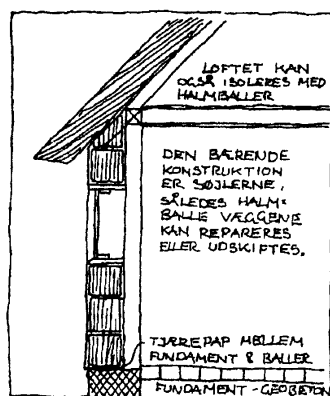 LOFTET KAN
OGSÅ ISOLERES MED
HALMBALLER
DEN BÆRENDE
KONSTRUKTION
ER SØJLERNE,
SÅLEDES HALM-
BALLE VÆGGENE
KAN REPARERES
ELLER UDSKIFTES.
TJÆREPAP MELLEM
FUNDAMENT & BALLER
FUNDAMENT - GEOBETON